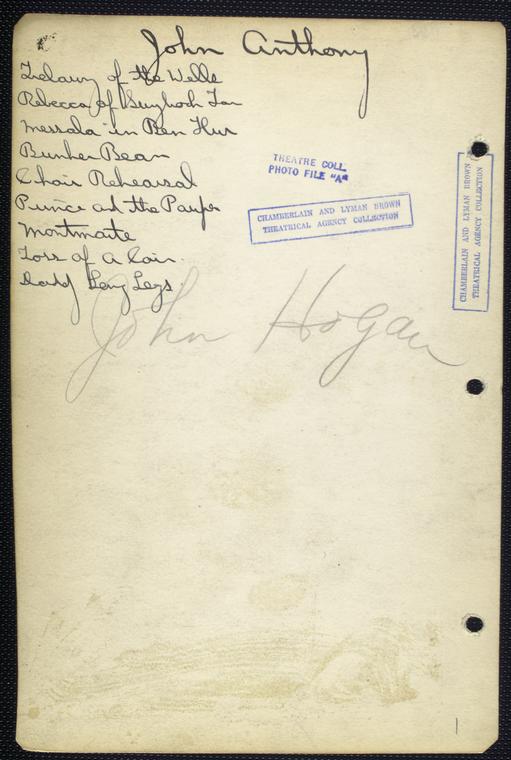 John Anthony
Trelawny of the Wells
Rebecca of Sunybrook Far
Messala in Ben Hur
Bunker Bean
Choir Rehearsal
Prince and the Pauper
Montmarte
Toss of a Coin
Daddy Long Legs
THEATRE COLL.
PHOTO FILE "A"
CHAMBERLAIN AND LYMAN BROWN
THEATRICAL AGENCY COLLECTION
CHAMBERLAIN AND LYMAN BROWN
THEATRICAL AGENCY COLLECTION
John Hogan
1